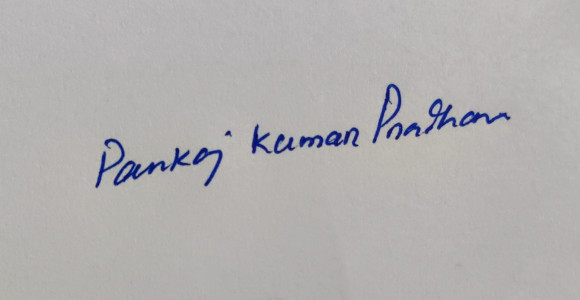 Pankaj Kumar Pradhan